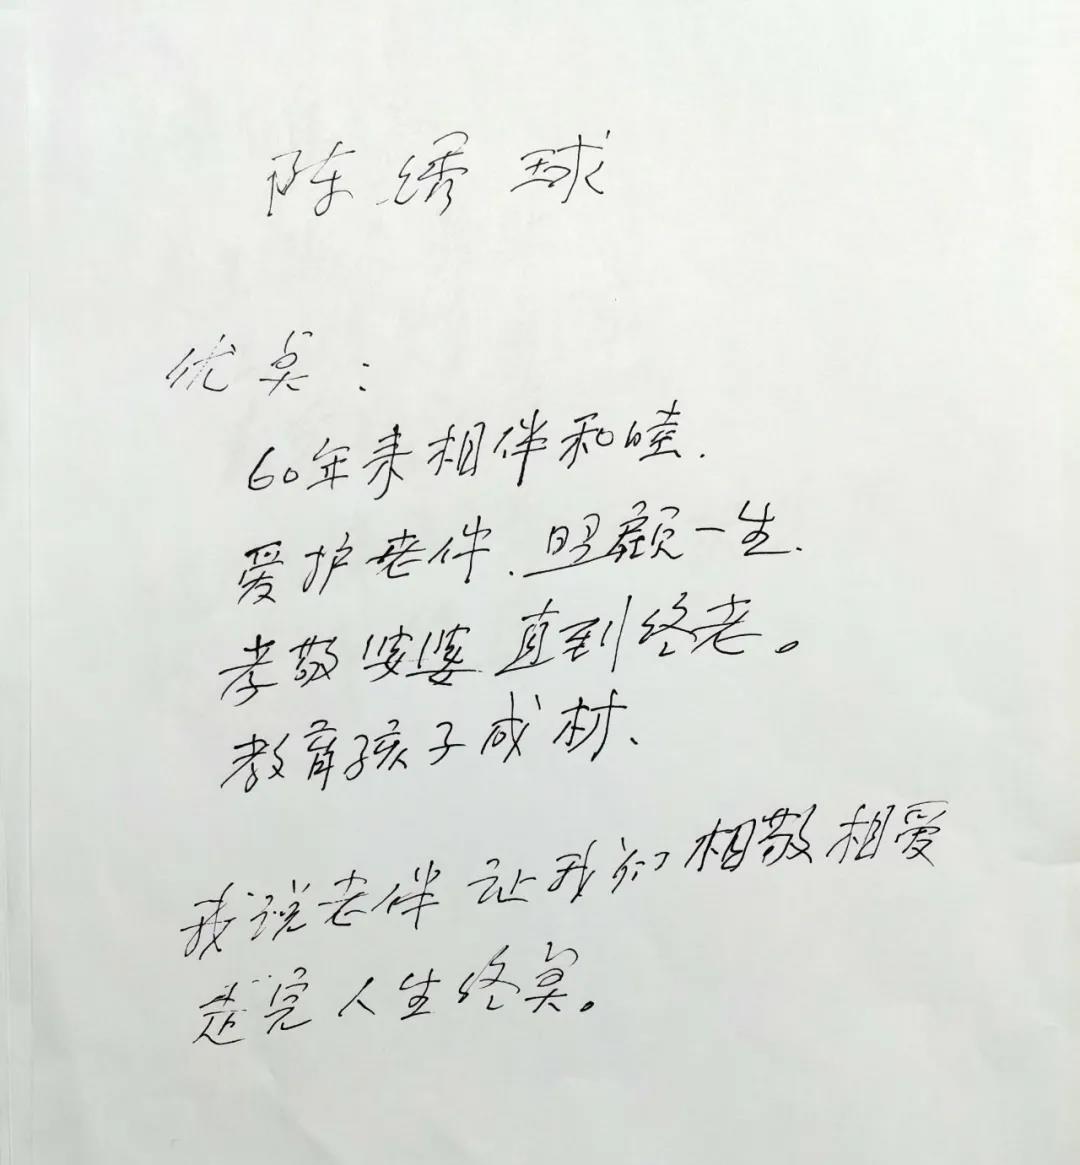 陈绣球
优点：
60年来相伴和睦.
爱护老伴.照顾一生.
孝敬婆婆直到终老。
教育孩子成材、
我说老伴让我们相敬相爱
走完人生终点。